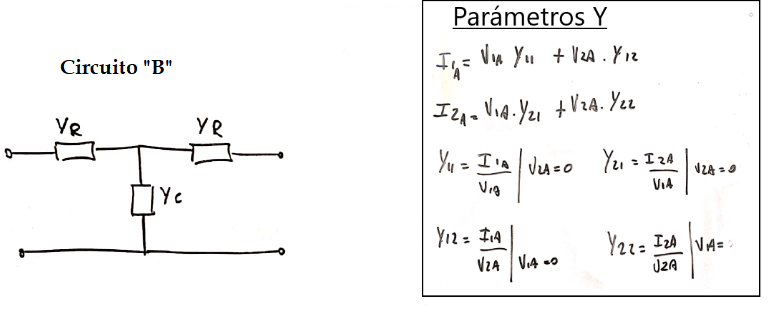 Circuito "B"
YR
YR
Yc
Parámetros Y
I1A = V1A Y11 + V2A . Y12
I2A = V1A . Y21 + V2A . Y22
Y11 = I1A / V1A | V2A = 0
Y21 = I2A / V1A | V2A = 0
Y12 = I1A / V2A | V1A = 0
Y22 = I2A / V2A | V1A =